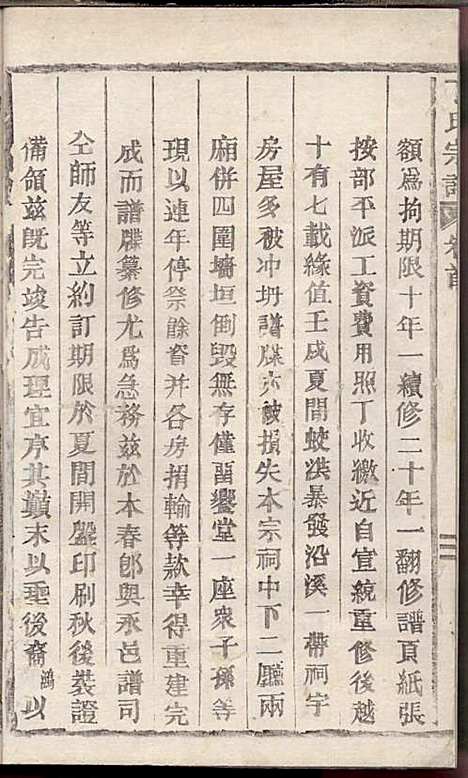 丁氏宗譜 卷首
額爲拘期限十年一續修二十年一翻修譜頁紙張
按部平派工資費用照丁收繳近自宣統重修後越
十有七載緣值壬戌夏間蛟洪暴發沿溪一帶祠宇
房屋多被冲坍譜牒亦被損失本宗祠中下二廳兩
廂併四圍墻垣倒毀無存僅畱饗堂一座衆子孫等
現以連年停祭餘資并各房捐輸等款幸得重建完
成而譜牒纂修尤爲急務茲於本春郎與永邑譜司
仝師友等立約訂期限於夏間開盤印刷秋後裝證
備領茲既完竣告成理宜序其巔末以垂後裔鴻以